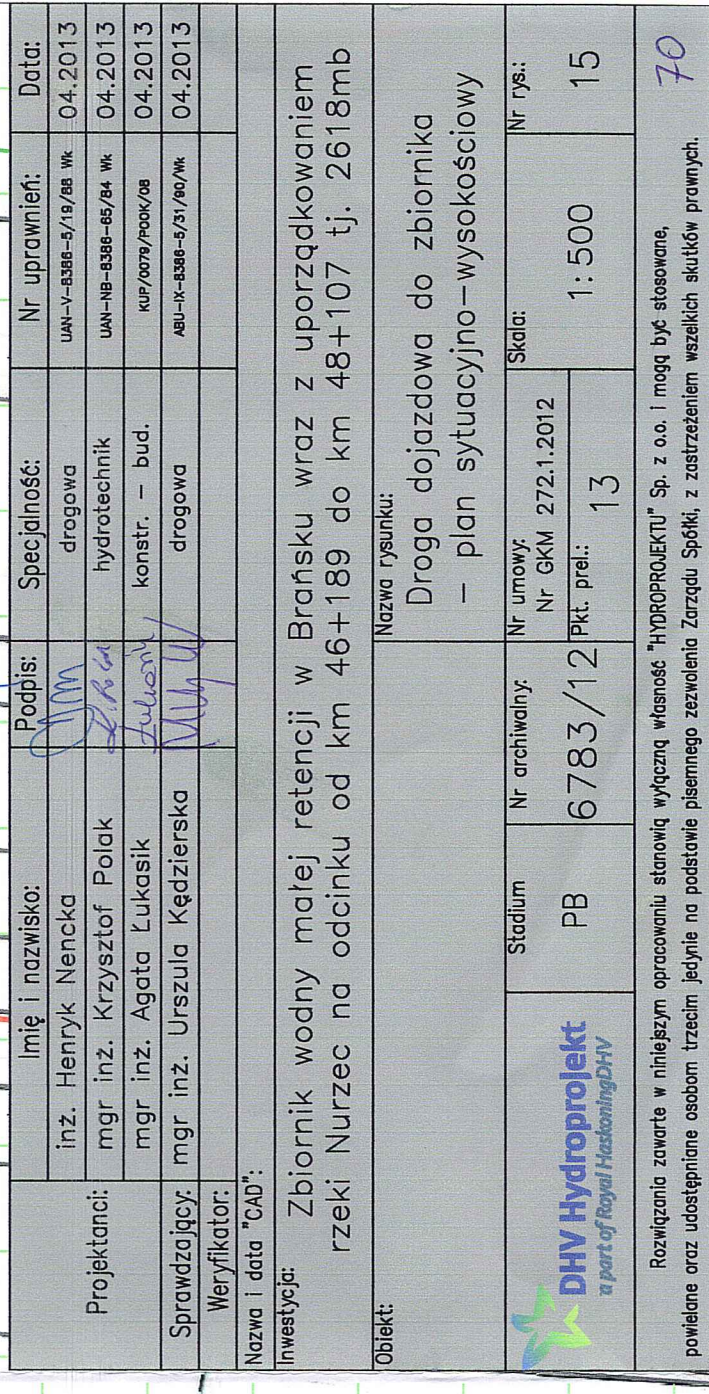 Imię i nazwisko: Podpis: Specjalność: Nr uprawnień: Data:
Projektanci: inż. Henryk Nencka drogowa UAN-V-8386-5/19/88 Wk 04.2013
mgr inż. Krzysztof Polak hydrotechnik UAN-NB-8386-65/84 Wk 04.2013
mgr inż. Agata Łukasik konstr. - bud. KUP/0079/POOK/08 04.2013
Sprawdzający: mgr inż. Urszula Kędzierska drogowa ABU-IX-8386-5/31/90/Wk 04.2013
Weryfikator:
Nazwa i data "CAD":
Inwestycja: Zbiornik wodny małej retencji w Brańsku wraz z uporządkowaniem
rzeki Nurzec na odcinku od km 46+189 do km 48+107 tj. 2618mb
Obiekt:
Nazwa rysunku:
Droga dojazdowa do zbiornika
- plan sytuacyjno-wysokościowy
DHV Hydroprojekt
a part of Royal HaskoningDHV
Stadium
PB
Nr archiwalny:
6783/12
Nr umowy:
Nr GKM 272.1.2012
Pkt. prel.: 13
Skala:
1:500
Nr rys.:
15
Rozwiązania zawarte w niniejszym opracowaniu stanowią wyłączną własność "HYDROPROJEKTU" Sp. z o.o. i mogą być stosowane,
powielane oraz udostępniane osobom trzecim jedynie na podstawie pisemnego zezwolenia Zarządu Spółki, z zastrzeżeniem wszelkich skutków prawnych.
70